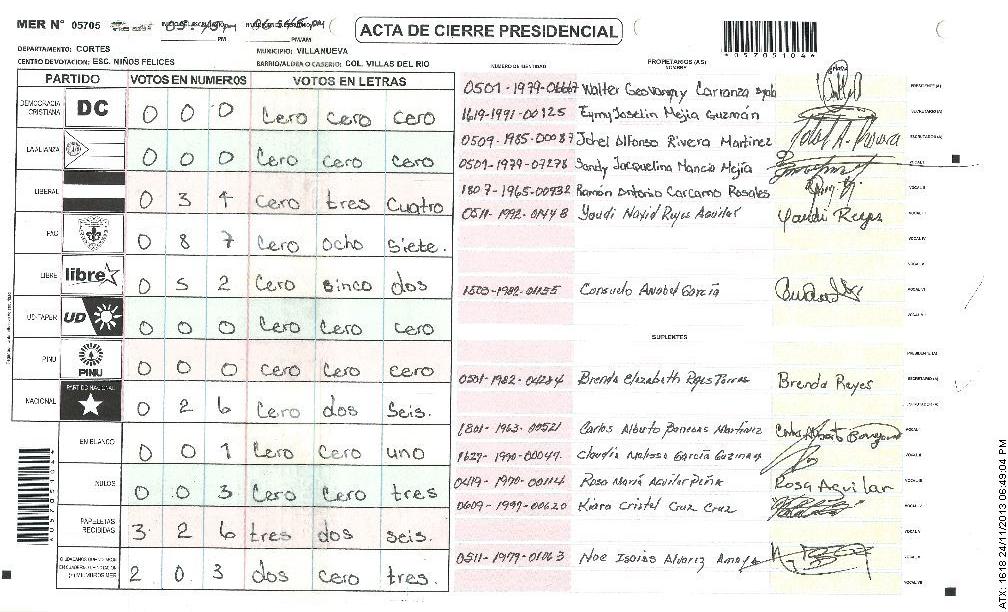 MER N° 05705
ACTA DE CIERRE PRESIDENCIAL
*05705104*
DEPARTAMENTO: CORTES
MUNICIPIO: VILLANUEVA
CENTRO DE VOTACION: ESC. NIÑOS FELICES
BARRIO/ALDEA O CASERIO: COL. VILLAS DEL RIO
PARTIDO VOTOS EN NUMEROS VOTOS EN LETRAS
NUMERO DE IDENTIDAD PROPIETARIOS (AS) NOMBRE
DEMOCRACIA CRISTIANA DC 0 0 0 Cero cero cero
LA ALIANZA 0 0 0 Cero cero cero
LIBERAL 0 3 4 cero tres cuatro
PAC 0 8 7 Cero ocho siete.
LIBRE libre 0 5 2 Cero sinco dos
UD-FAPER UD 0 0 0 Cero Cero cero
PINU PINU 0 0 0 Cero Cero cero
NACIONAL PARTIDO NACIONAL 0 2 6 Cero dos seis.
EN BLANCO 0 0 1 Cero Cero uno
NULOS 0 0 3 Cero Cero tres
PAPELETAS RECIBIDAS 3 2 6 tres dos seis.
2 0 3 dos cero tres.
0501-1979- Walter Geovanny Carranza PRESIDENTE (A)
1619-1991-00125 Eymy Joselin Mejia Guzmán SECRETARIO (A)
0509-1985-00087 Johel Alfonso Rivera Martinez ESCRUTADOR (A)
0501-1979-07278 Sandy Jacquelina Mancia Mejía VOCAL I
1807-1965-00932 Ramón Antonio Carcamo Rosales VOCAL II
0511-1992-01448 Yaudi Nayid Reyes Aguilar Yaudi Reyes VOCAL III
VOCAL IV
VOCAL V
1503-1982-01155 Consuelo Anabel García VOCAL VI
VOCAL VII
SUPLENTES
PRESIDENTE (A)
0501-1982-04284 Brenda Elizabeth Reyes Torres Brenda Reyes SECRETARIO (A)
ESCRUTADOR (A)
1801-1963-00521 Carlos Alberto Banegas Martínez VOCAL I
1627-1990-00047 Claudia Melissa García Guzman VOCAL II
0419-1990-00114 Rosa María Aguilar Peña Rosa Aguilar VOCAL III
0609-1990-00620 Kiara Cristel Cruz Cruz VOCAL IV
VOCAL V
VOCAL VI
0511-1979-01063 Noe Isaias Alvarez Amaya
VOCAL VII
*05705104*
ATX: 1618 24/11/2013 06:49:04 PM